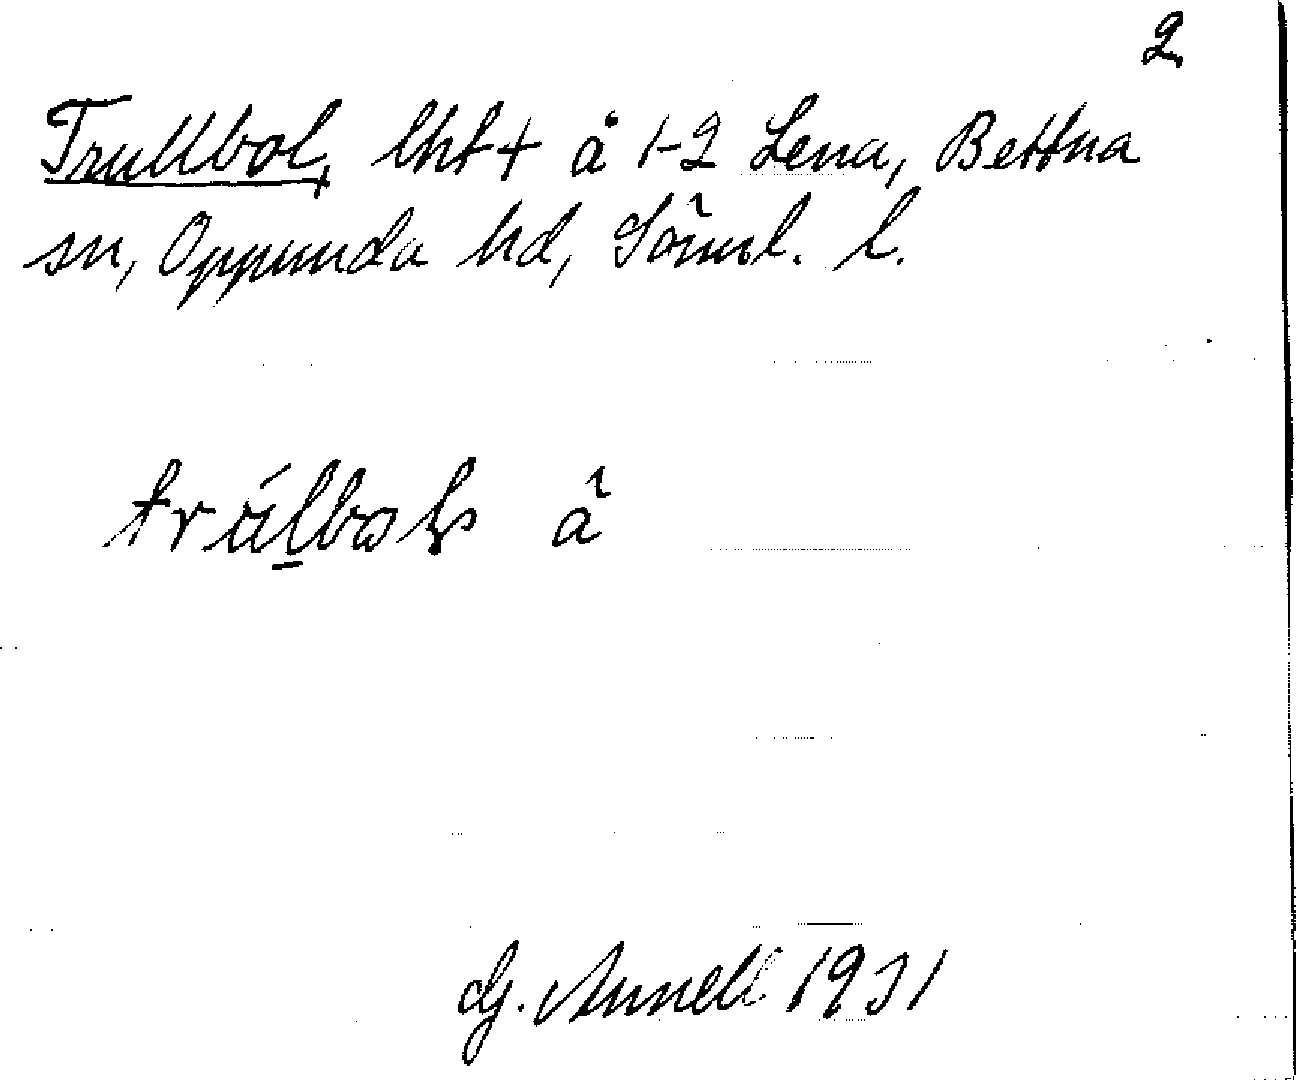 2
Trullbol, lht + å 1-2 Lena, Bettna
sn, Oppunda hd, Söml. l.
å
G. Annell 1931